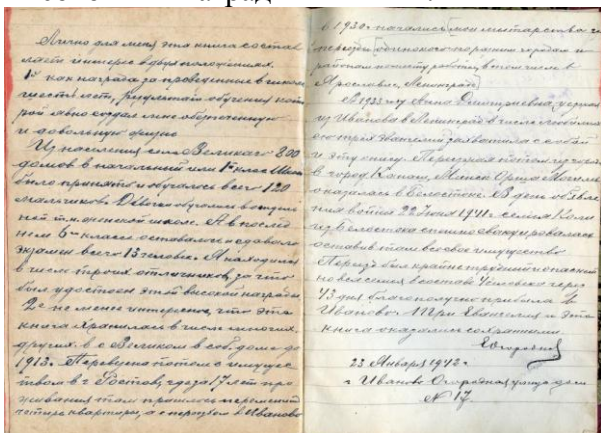 Лично для меня эта книга состав
ляет интерес в двух положениях.
1е как награда за проведенные в школе
шесть лет, результат обучения кото
рой явно создал мне обеспеченную
и довольную жизнь
Из населения села Великаго 800
домов в начальный или 1й класс Школы
было принято и обучалось всего 120
мальчиков.
ней т. н. женской школе. А в послед
нем 6м классе оставалось и сдавало
экзамен всего 15 человек. Я находился
в числе троих отличников, за что
был удостоен этой высокой награды
2е не менее интересно, что эта
книга хранилась в числе многих
других в с. Великом в соб. доме до
1913. Перевезена потом с имущес
твом в г. Ростов, где за 17 лет про
живания там пришлось переменить
четыре квартиры, а с переездом в Иваново
в 1930. начались мои мытарства и
переезды одинокого по разным городам и
районам по месту работы, в том числе в
Ярославле, Ленинград
В 1933 году Анна Дмитриевна, уезжая
из Иванова в Ленинград в числе
захватила с собой
и эту книгу. Переезжая потом из города
в город Канаш, Минск Орша Могилев
оказалась в Белостоке. В день объявле
ния войны 22 Июня 1941 г. семья Коли
из Белостока спешно эвакуировалась
оставив там все свое имущество
Переезд был крайне трудный и опасный
но вся семья в составе 4 человек через
13 дней благополучно прибыла в
Иваново. Три Евангелия и эта
книга оказались сохранными
23 Января 1942.
г. Иваново Огородная улица дом
№ 17